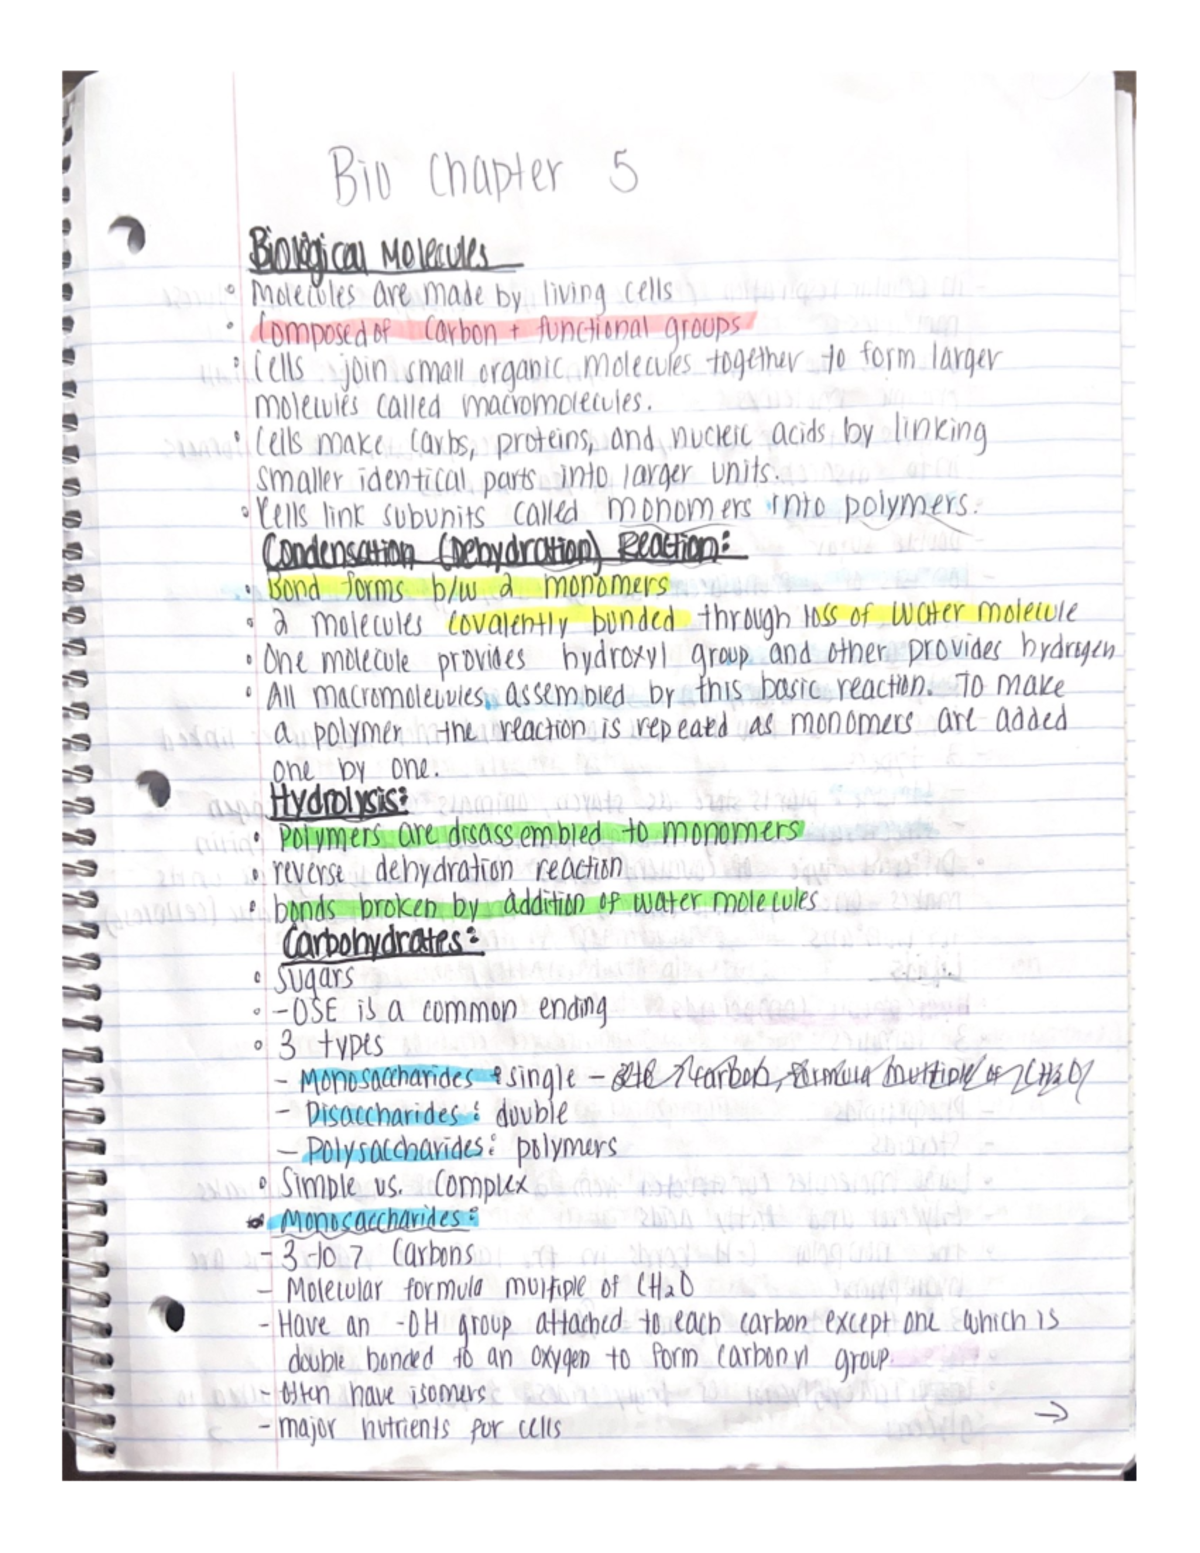 Bio Chapter 5
Biological Molecules
• Molecules are made by living cells
• Composed of carbon + functional groups
• Cells join small organic molecules together to form larger
molecules called macromolecules.
• Cells make carbs, proteins, and nucleic acids by linking
smaller identical parts into larger units.
• Cells link subunits called monomers into polymers.
Condensation (Dehydration) Reaction:
• Bond forms b/w 2 monomers
• 2 molecules covalently bonded through loss of water molecule
• One molecule provides hydroxyl group and other provides hydrogen
• All macromolecules assembled by this basic reaction. To make
a polymer the reaction is repeated as monomers are added
one by one.
Hydrolysis:
• Polymers are disassembled to monomers
• reverse dehydration reaction
• bonds broken by addition of water molecules
Carbohydrates:
• Sugars
• -OSE is a common ending
• 3 types
- Monosaccharides: single - carbon, formula multiple of (CH2O)
- Disaccharides: double
- Polysaccharides: polymers
• Simple vs. Complex
Monosaccharides:
- 3-to 7 Carbons
- Molecular formula multiple of CH2O
- Have an -OH group attached to each carbon except one which is
double bonded to an oxygen to form carbonyl group.
- often have isomers
- major nutrients for cells
→